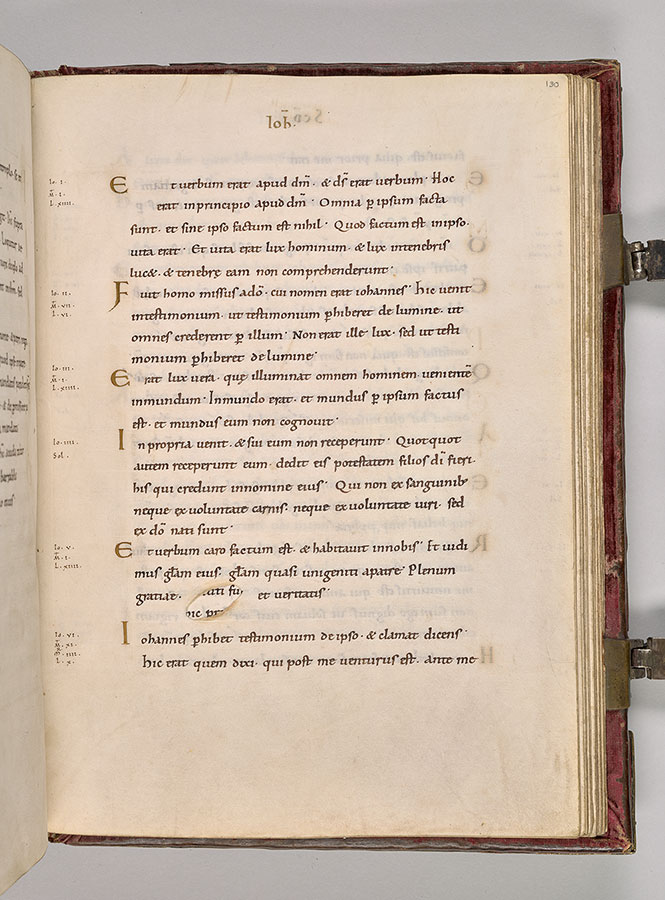 130
Ioħ.
Et verbum erat apud dm̄. & ds̄ erat verbum. Hoc
erat inprincipio apud dm̄. Omnia ꝑ ipsum facta
sunt. et sine ipso factum est nihil. Quod factum est inipso.
uita erat. Et uita erat lux hominum. & lux intenebris
lucæ. & tenebrę eam non comprehenderunt.
Fuit homo missus adō. cui nomen erat iohannes. hic uenit
intestimonium. ut testimonium ꝑhiberet de lumine. ut
omnes crederent ꝑ illum. Non erat ille lux. sed ut testi
monium ꝑhiberet de lumine.
Erat lux uera. quę illuminat omnem hominem uenientē
inmundum. Inmundo erat. et mundus ꝑ ipsum factus
est. et mundus eum non cognouit.
In propria uenit. & sui eum non receperunt. Quotquot
autem receperunt eum. dedit eis potestatem filios dī fieri.
his qui credunt innomine eius. Qui non ex sanguinib;
neque ex uoluntate carnis. neque ex uoluntate uiri. sed
ex dō nati sunt.
Et uerbum caro factum est. & habitauit innobis. Et uidi
mus glām eius. glām quasi unigeniti apatre. Plenum
gratiae. et ueritatis.
Iohannes ꝑhibet testimonium de ipso. & clamat dicens.
hic erat quem dixi. qui post me uenturus est. ante me
Io. I.
M̄. I.
L. XIIII.
Io. II.
M̄. VII.
L. VI.
Io. III.
M̄. I.
L. XIIII.
Io. IIII.
Sol.
Io. V.
M̄. I.
L. XIIII.
Io. VI.
M̄. XI.
L. X.